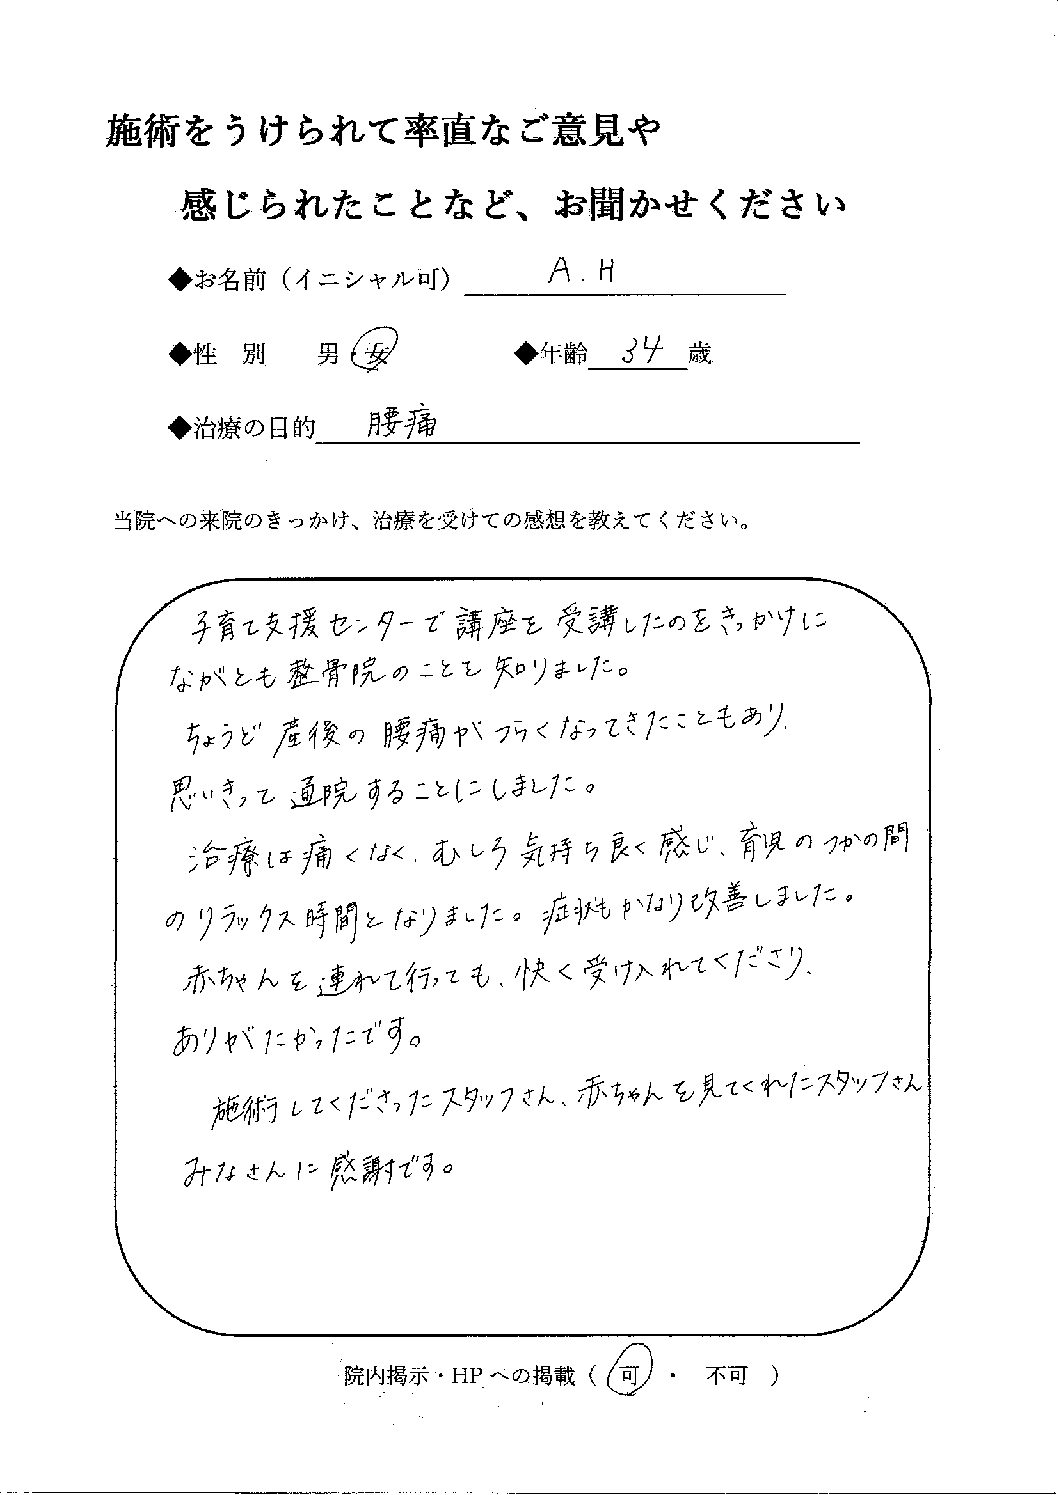 施術をうけられて率直なご意見や
感じられたことなど、お聞かせください
◆お名前（イニシャル可） A.H
◆性 別 男・女 ◆年齢 34 歳
◆治療の目的 腰痛
当院への来院のきっかけ、治療を受けての感想を教えてください。
子育て支援センターで講座を受講したのをきっかけに
ながとも整骨院のことを知りました。
ちょうど産後の腰痛がつらくなってきたこともあり、
思いきって通院することにしました。
治療は痛くなく、むしろ気持ち良く感じ、育児のつかの間
のリラックス時間となりました。症状もかなり改善しました。
赤ちゃんを連れて行っても、快く受け入れてくださり、
ありがたかったです。
施術してくださったスタッフさん、赤ちゃんを見てくれたスタッフさん
みなさんに感謝です。
院内掲示・HPへの掲載（ 可 ・ 不可 ）